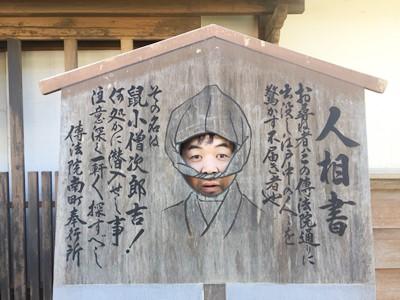 人相書
お尋ね者この傳法院通に
出没し江戸中の人々を
驚かす不届き者也
その名は
鼠小僧次郎吉!
何処かに潜入せし事
注意深く一軒く探すべし
傳法院南町奉行所